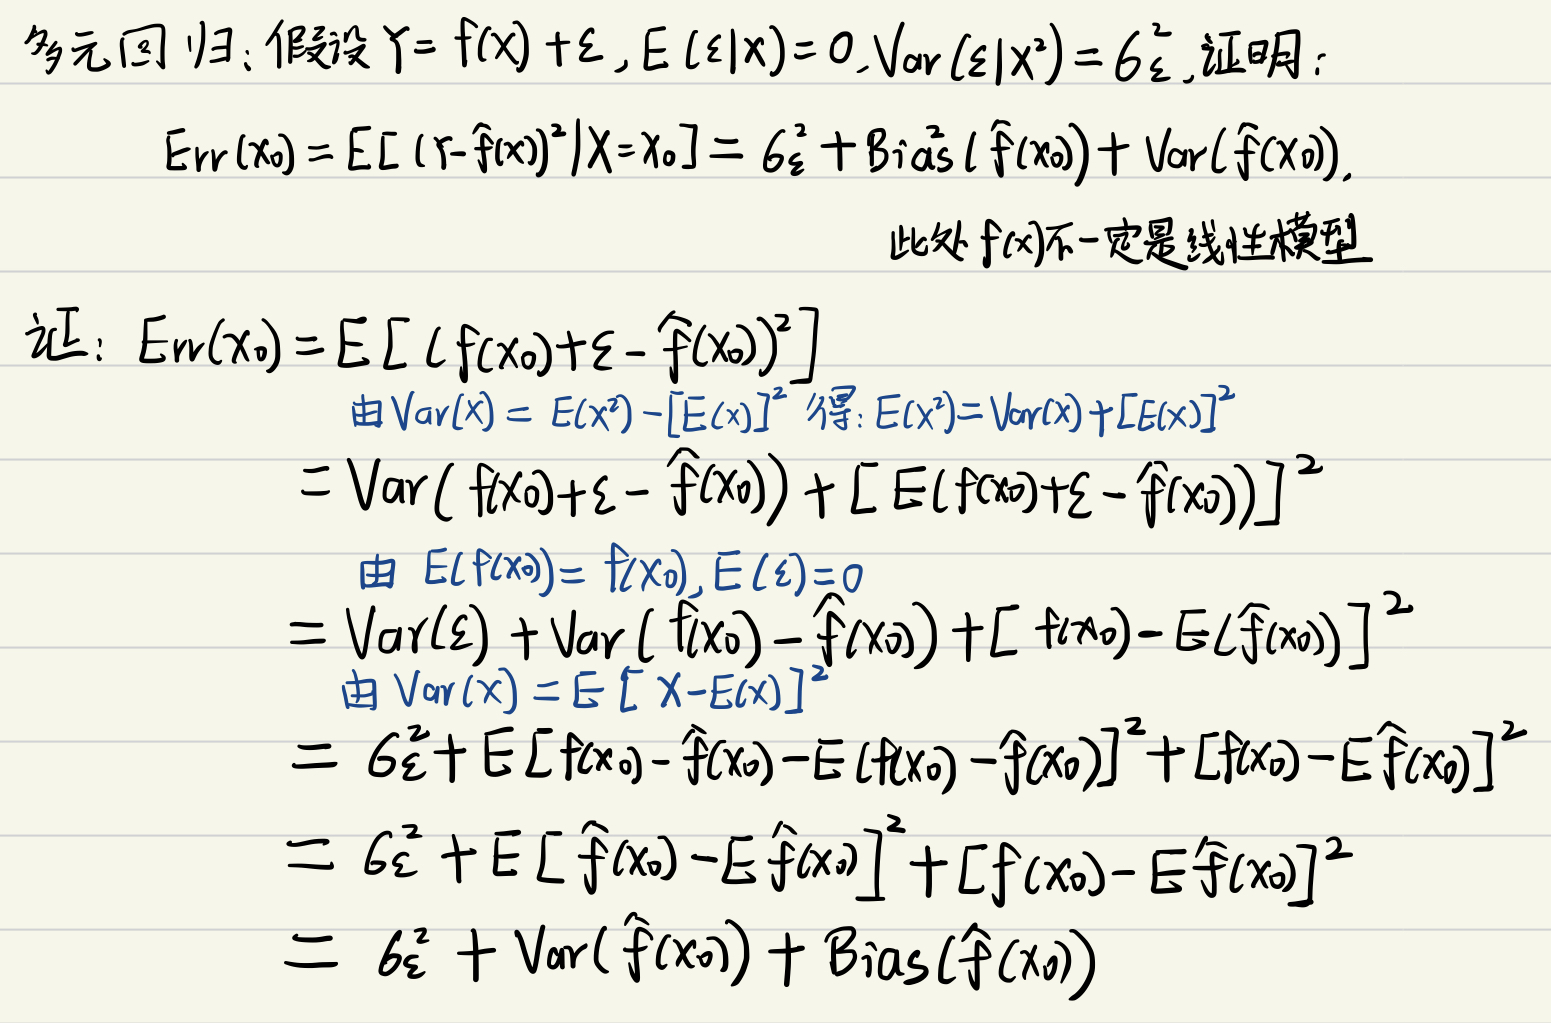 多元回归:假设 Y = f(x) + ε, E(ε|x) = 0, Var(ε|x²) = σ_ε², 证明:
Err(x₀) = E[(Y-f̂(x))²|X=x₀] = σ_ε² + Bias²(f̂(x₀)) + Var(f̂(x₀)).
此处 f(x)不一定是线性模型
证: Err(x₀) = E[(f(x₀)+ε-f̂(x₀))²]
由 Var(x) = E(x²) - [E(x)]² 得: E(x²) = Var(x) + [E(x)]²
= Var(f(x₀)+ε-f̂(x₀)) + [E(f(x₀)+ε-f̂(x₀))]²
由 E(f(x₀)) = f(x₀), E(ε) = 0
= Var(ε) + Var(f(x₀)-f̂(x₀)) + [f(x₀)-E(f̂(x₀))]²
由 Var(x) = E[X-E(x)]²
= σ_ε² + E[f(x₀)-f̂(x₀)-E(f(x₀)-f̂(x₀)]² + [f(x₀)-Ef̂(x₀)]²
= σ_ε² + E[f̂(x₀)-Ef̂(x₀)]² + [f(x₀)-Ef̂(x₀)]²
= σ_ε² + Var(f̂(x₀)) + Bias(f̂(x₀))